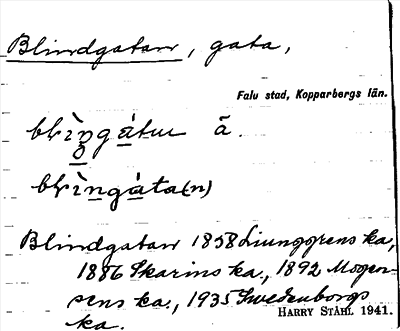 Blindgatan, gata,
Falu stad, Kopparbergs län.
blìngátu ā.
blìngàta(n)
Blindgatan 1858 Ljunggrens ka,
1886 Skarins ka., 1892 Mogen-
sens ka., 1935 Swedenborgs
ka.
HARRY STÅHL 1941.